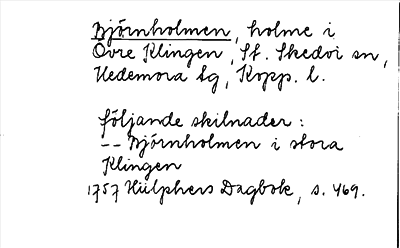 Björnholmen, holme i
Övre Klingen, St. Skedvi sn,
Hedemora tg, Kopp. l.
följande skilnader:
-- Björnholmen i stora
Klingen
1757 Hülphers Dagbok, s. 469.